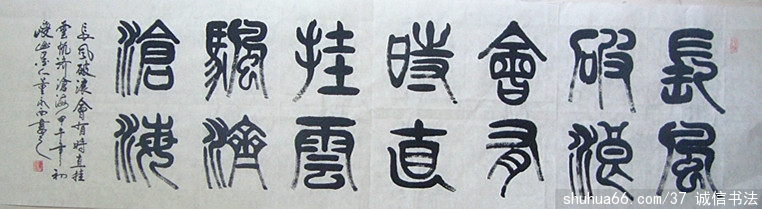 長風
破浪
會有
時直
挂雲
颿濟
滄海
長风破浪會有時直挂
雲帆济滄海甲午年初
shuhua66.com/37 诚信书法